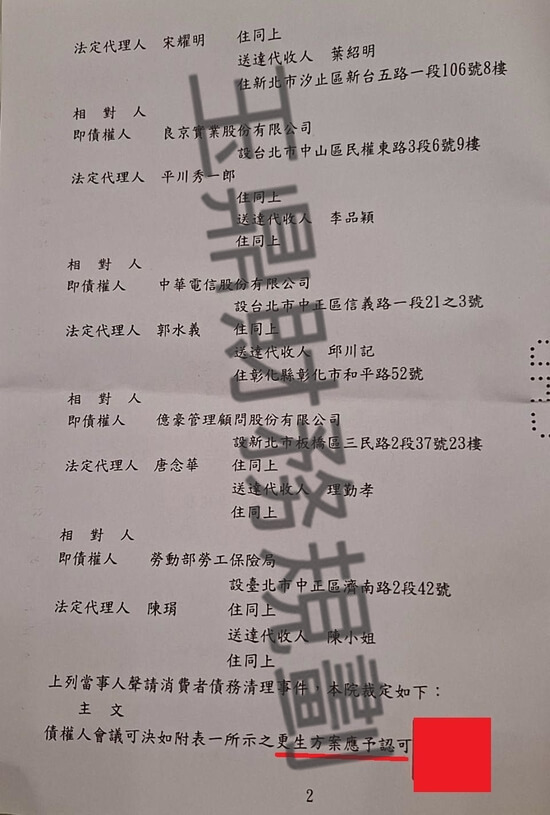 法定代理人 宋耀明 住同上
送達代收人 葉紹明
住新北市汐止區新台五路一段106號8樓
相 對 人
即債權人 良京實業股份有限公司
設台北市中山區民權東路3段6號9樓
法定代理人 平川秀一郎
住同上
送達代收人 李品穎
住同上
相 對 人
即債權人 中華電信股份有限公司
設台北市中正區信義路一段21之3號
法定代理人 郭水義 住同上
送達代收人 邱川記
住彰化縣彰化市和平路52號
相 對 人
即債權人 億豪管理顧問股份有限公司
設新北市板橋區三民路2段37號23樓
法定代理人 唐念華 住同上
送達代收人 理勤孝
住同上
相 對 人
即債權人 勞動部勞工保險局
設臺北市中正區濟南路2段42號
法定代理人 陳琄 住同上
送達代收人 陳小姐
住同上
上列當事人聲請消費者債務清理事件，本院裁定如下：
主 文
債權人會議可決如附表一所示之更生方案應予認可
2
玉鼎財務規劃